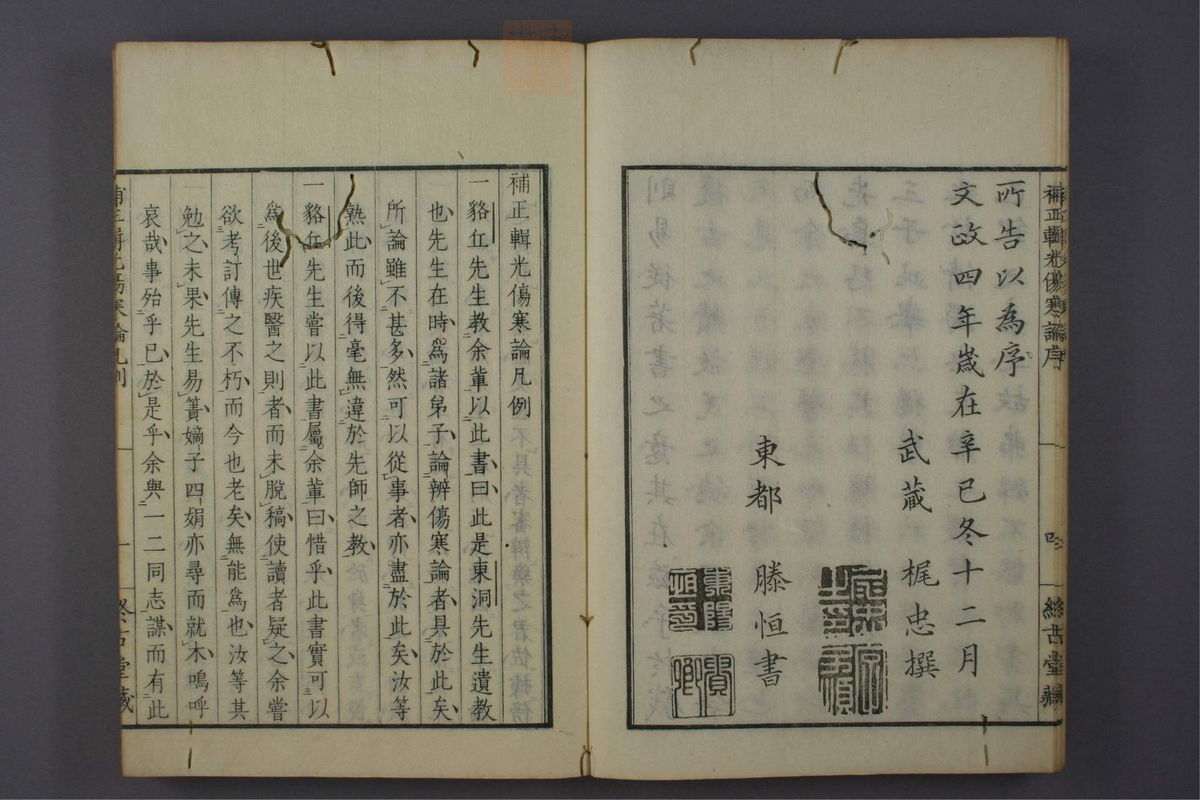 補正輯光傷寒論序
四
所告以為序
文政四年歲在辛巳冬十二月
武蔵 梶忠撰
東都 滕恒書
補正輯光傷寒論凡例
一貉丘先生教余輩以此書曰此是東洞先生遺教
也先生在時爲諸弟子論辨傷寒論者具於此矣
所論雖不甚多然可以從事者亦盡於此矣汝等
熟此而後得毫無違於先師之教
一貉丘先生嘗以此書屬余輩曰惜乎此書實可以
爲後世疾醫之則者而未脫稿使讀者疑之余嘗
欲考訂傳之不朽而今也老矣無能爲也汝等其
勉之未果先生易簀嫡子四娟亦尋而就木嗚呼
哀哉事殆乎已於是乎余與一二同志謀而有此
補正輯光傷寒論凡例
一